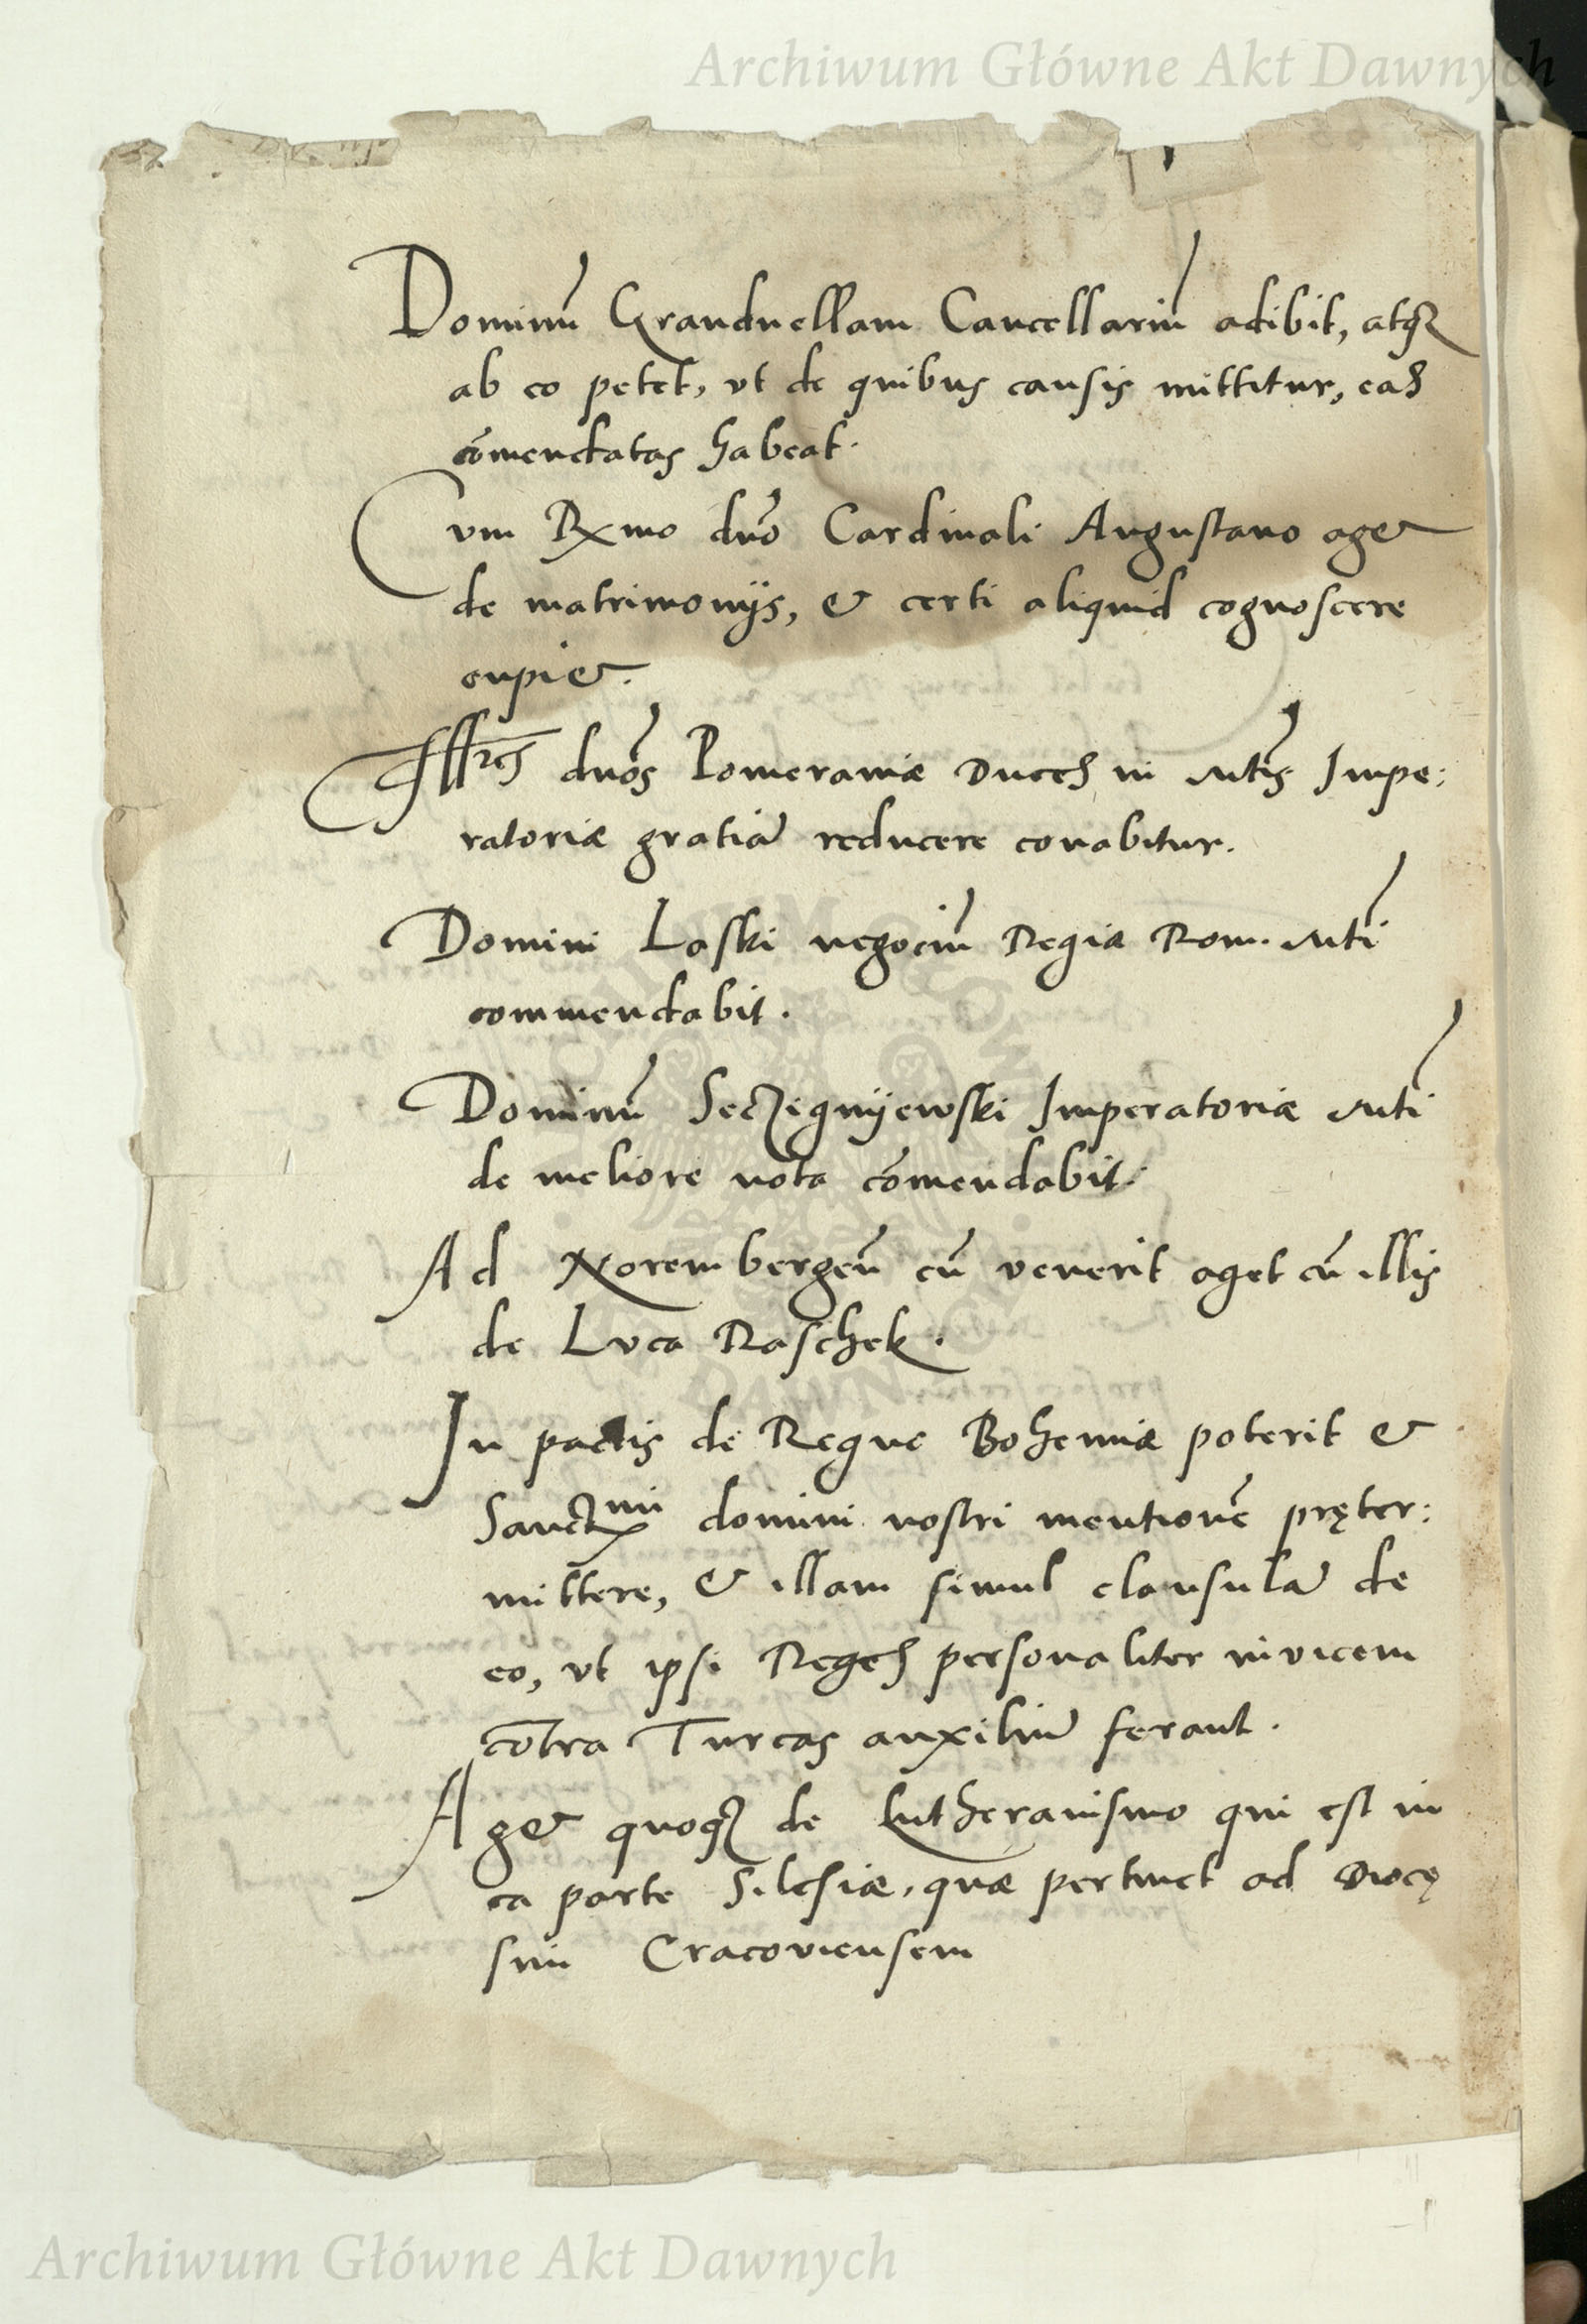 Archiwum Główne Akt Dawnych
Dominū Granduellam Cancellariū adibit, atq3
ab eo petet, vt de quibus causis mittitur, eas
cōmendatas habeat.
Cum Rmo dnō Cardinali Augustano aget
de matrimonijs, & certi aliquid cognoscere
cupiet.
Illres dnōs Pomeraniæ Duces in Mtis Impe:
ratoriæ gratiā reducere conabitur.
Domini Laski negociū Regiæ Rom. Mti
commendabit.
Dominū Seczignijewski Imperatoriæ Mti
de meliore nota cōmendabit.
Ad Norembergen̄ cū venerit aget cū illis
de Luca Raschek.
In pactis de Regne Bohemiæ poterit &
Sanctmi domini nostri mentionē pręter:
mittere, & illam simul clausulā de
eo, vt ipsi Reges personaliter invicem
contra Turcas auxiliū ferant.
Aget quoq3 de Lutheranismo qui est in
ea parte Silesiæ, quæ pertinet ad Diocę
sim Cracoviensem
Archiwum Główne Akt Dawnych